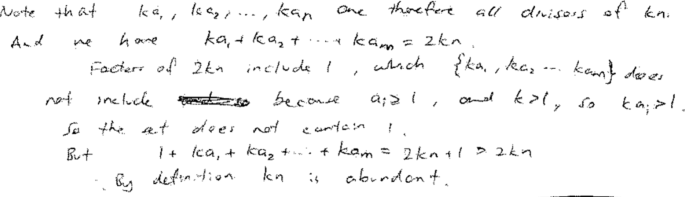 Note that ka₁, ka₂, ..., kaₙ are therefore all divisors of kn.
And we have ka₁ + ka₂ + ... + kaₘ = 2kn.
Factors of 2kn include 1, which {ka₁, ka₂ ... kaₘ} does
not include because aᵢ≥1, and k>1, so kaᵢ>1.
So the set does not contain 1.
But 1 + ka₁ + ka₂ + ... + kaₘ = 2kn+1 > 2kn
∴ By definition kn is abundant.